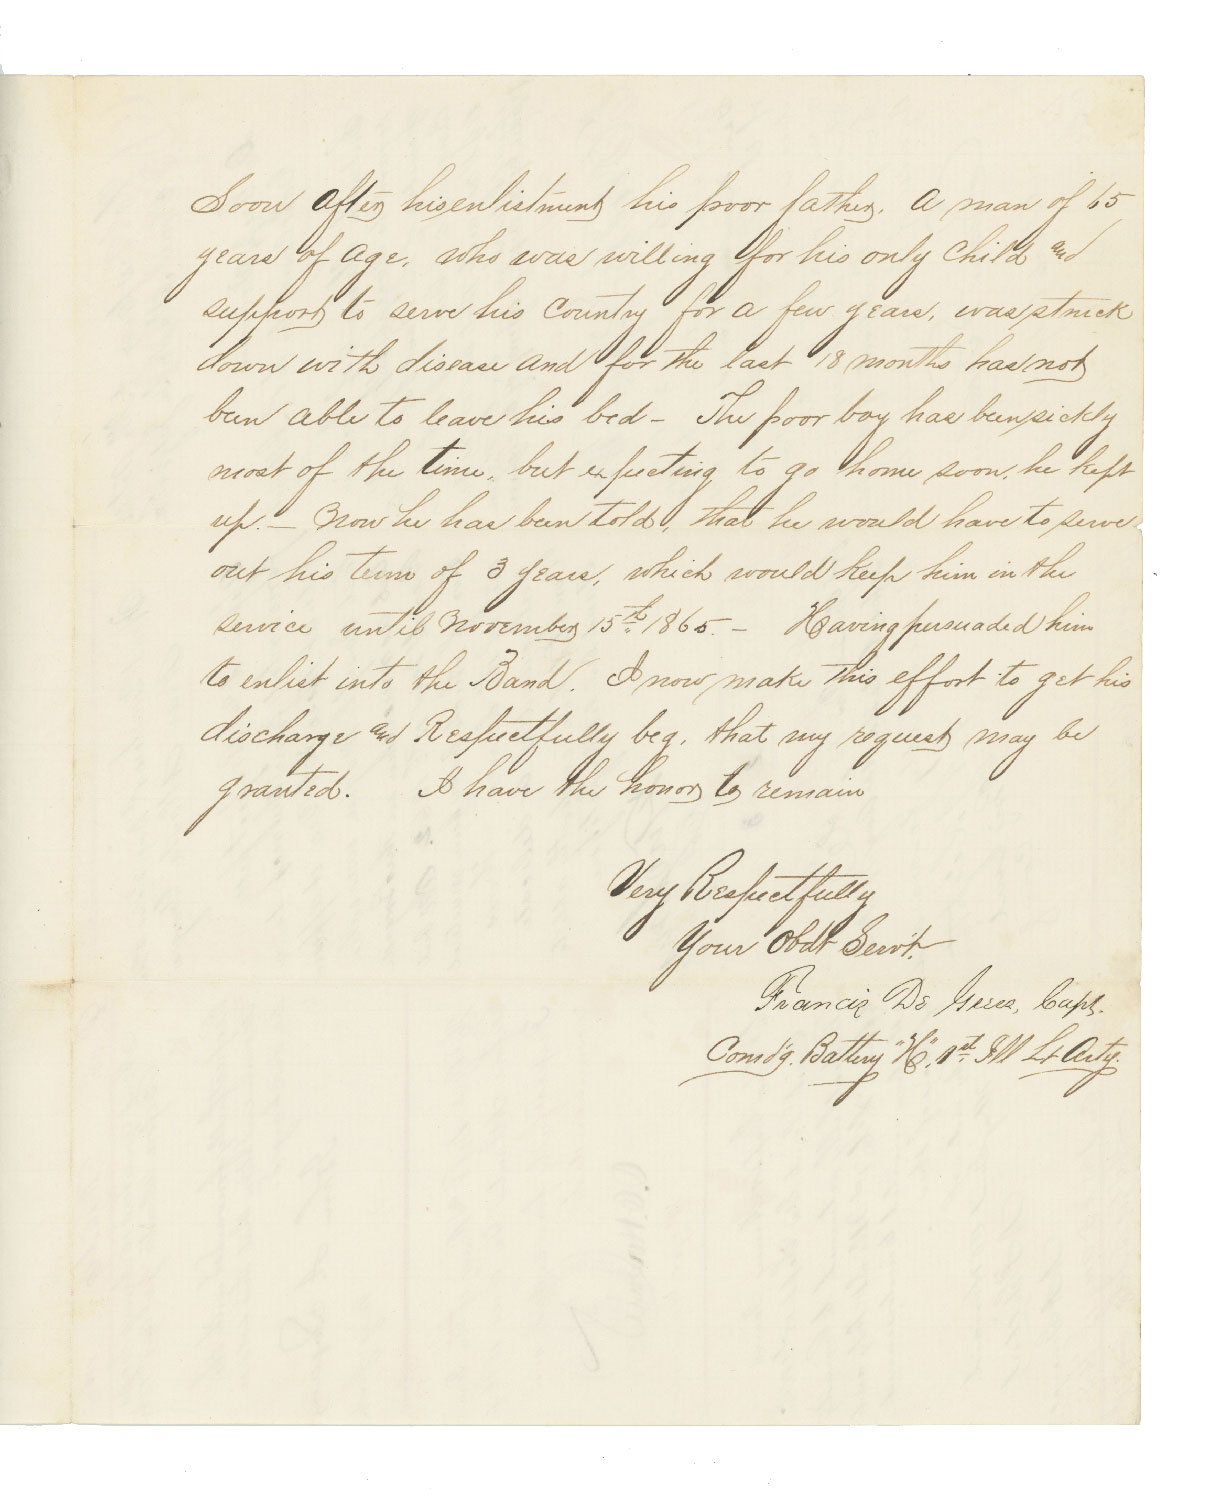 Soon after his enlistment his poor father, a man of 65
years of age, who was willing for his only Child and
support to serve his Country for a few years, was struck
down with disease and for the last 18 months has not
been able to leave his bed – The poor boy has been sickly
most of the time, but expecting to go home soon, he kept
up. – Now he has been told, that he would have to serve
out his term of 3 years, which would keep him in the
service until November 15th 1865. – Having persuaded him
to enlist into the Band. I now make this effort to get his
discharge and Respectfully beg, that my request may be
granted. I have the honor to remain
Very Respectfully
Your Obdt Servt.
Francis De Gress, Capt.
Comdg. Battery "H", 1st Ill Lt Arty.